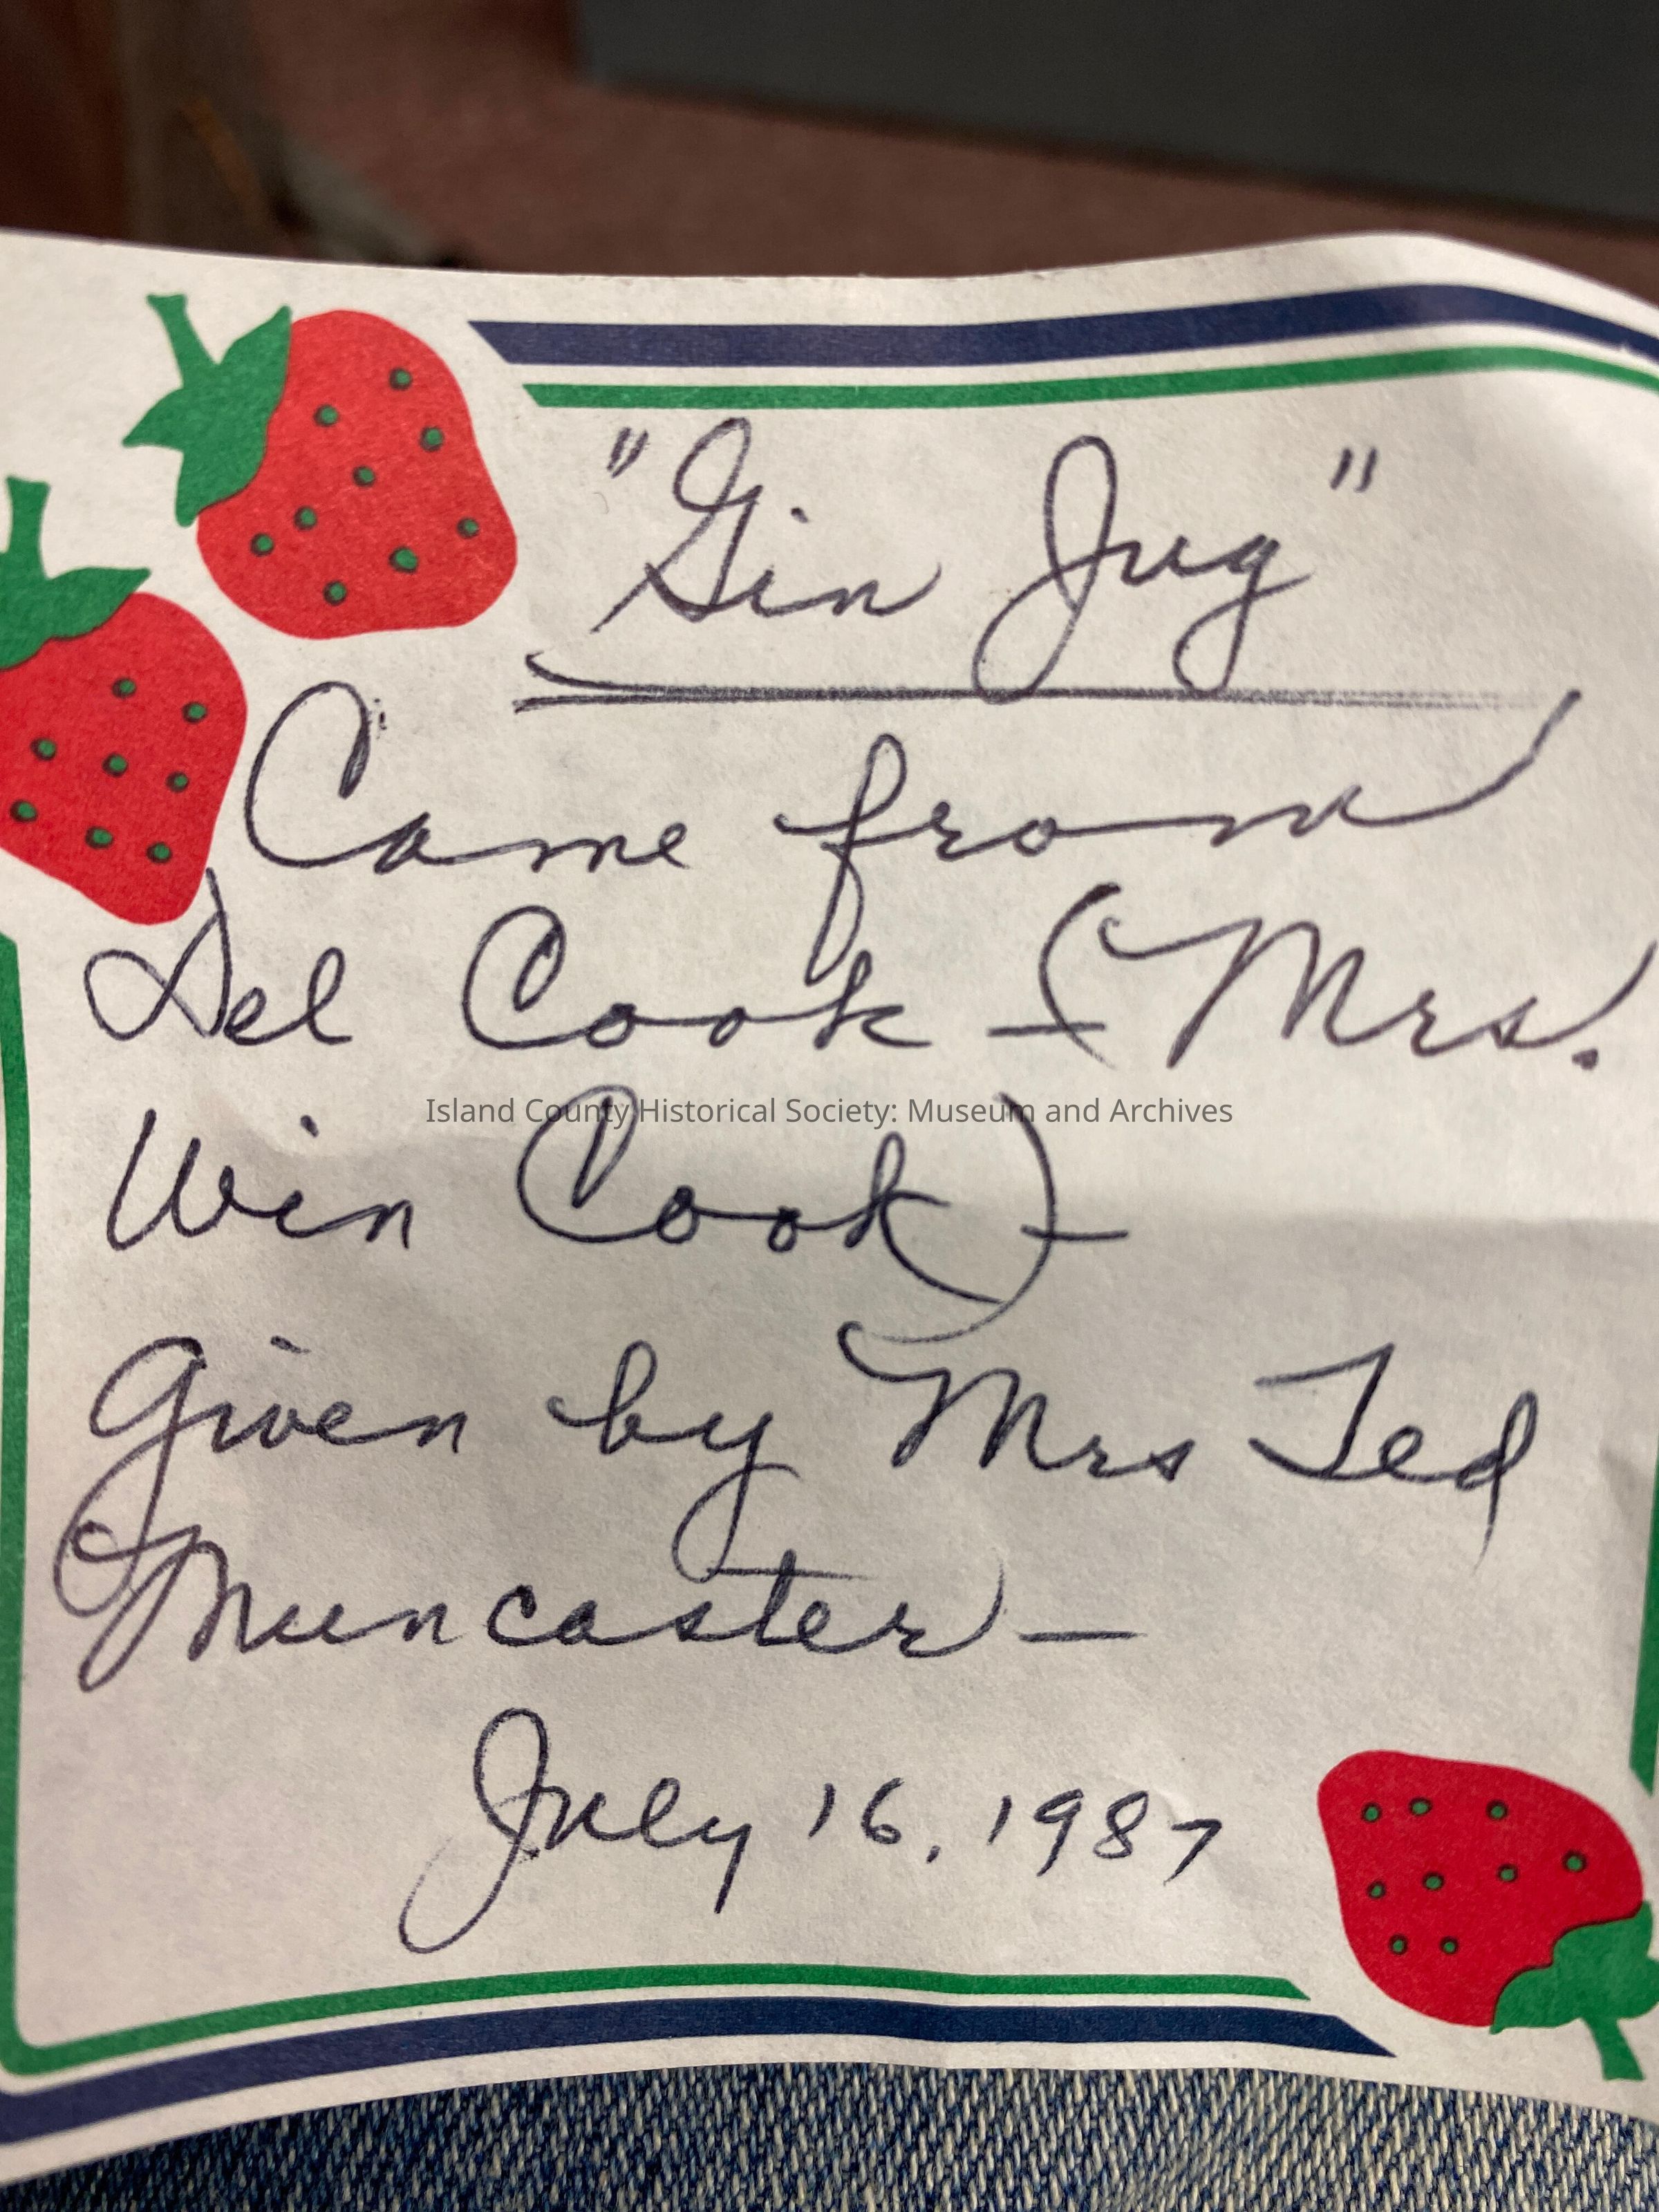 "Gin Jug"
Came from
Del Cook - (Mrs.
Win Cook) -
Given by Mrs Ted
Muncaster -
July 16, 1987
Island County Historical Society: Museum and Archives